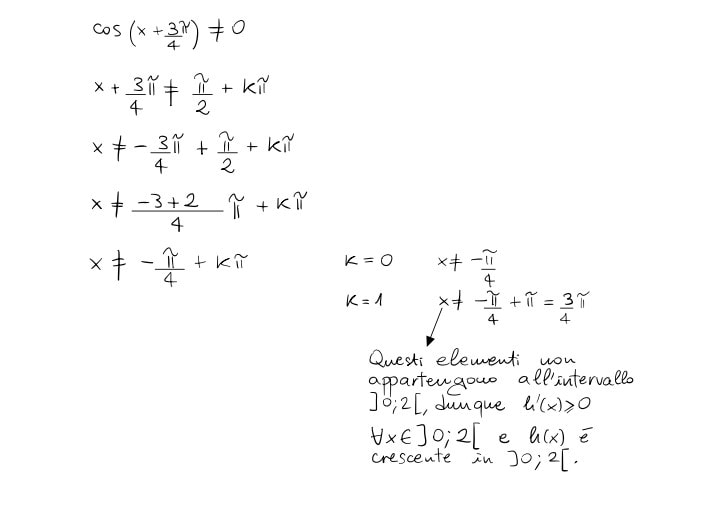 cos (x + 3π/4) ≠ 0
x + 3/4 π ≠ π/2 + kπ
x ≠ - 3/4 π + π/2 + kπ
x ≠ (-3+2)/4 π + kπ
x ≠ - π/4 + kπ
k = 0 x ≠ -π/4
k = 1 x ≠ -π/4 + π = 3/4 π
Questi elementi non
appartengono all'intervallo
]0;2[, dunque h'(x)⩾0
∀x∈]0;2[ e h(x) é
crescente in ]0;2[.